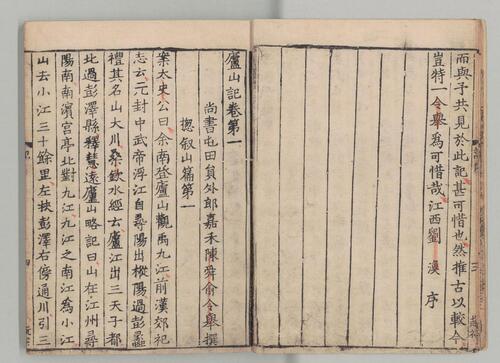 而與予共見於此記甚可惜也然推古以較今
豈特一令舉爲可惜哉江西劉渙序
廬山記卷第一
尚書屯田員外郎嘉禾陳舜俞令舉撰
揔叙山篇第一
案太史公曰余南登廬山觀禹九江前漢郊祀
志云元封中武帝浮江自尋陽出樅陽過彭蠡
禮其名山大川桑欽水經云廬江出三天子都
北過彭澤縣釋慧遠廬山略記曰山在江州尋
陽南南濱宮亭北對九江九江之南江爲小江
山去小江三十餘里左挾彭澤右傍通川引三